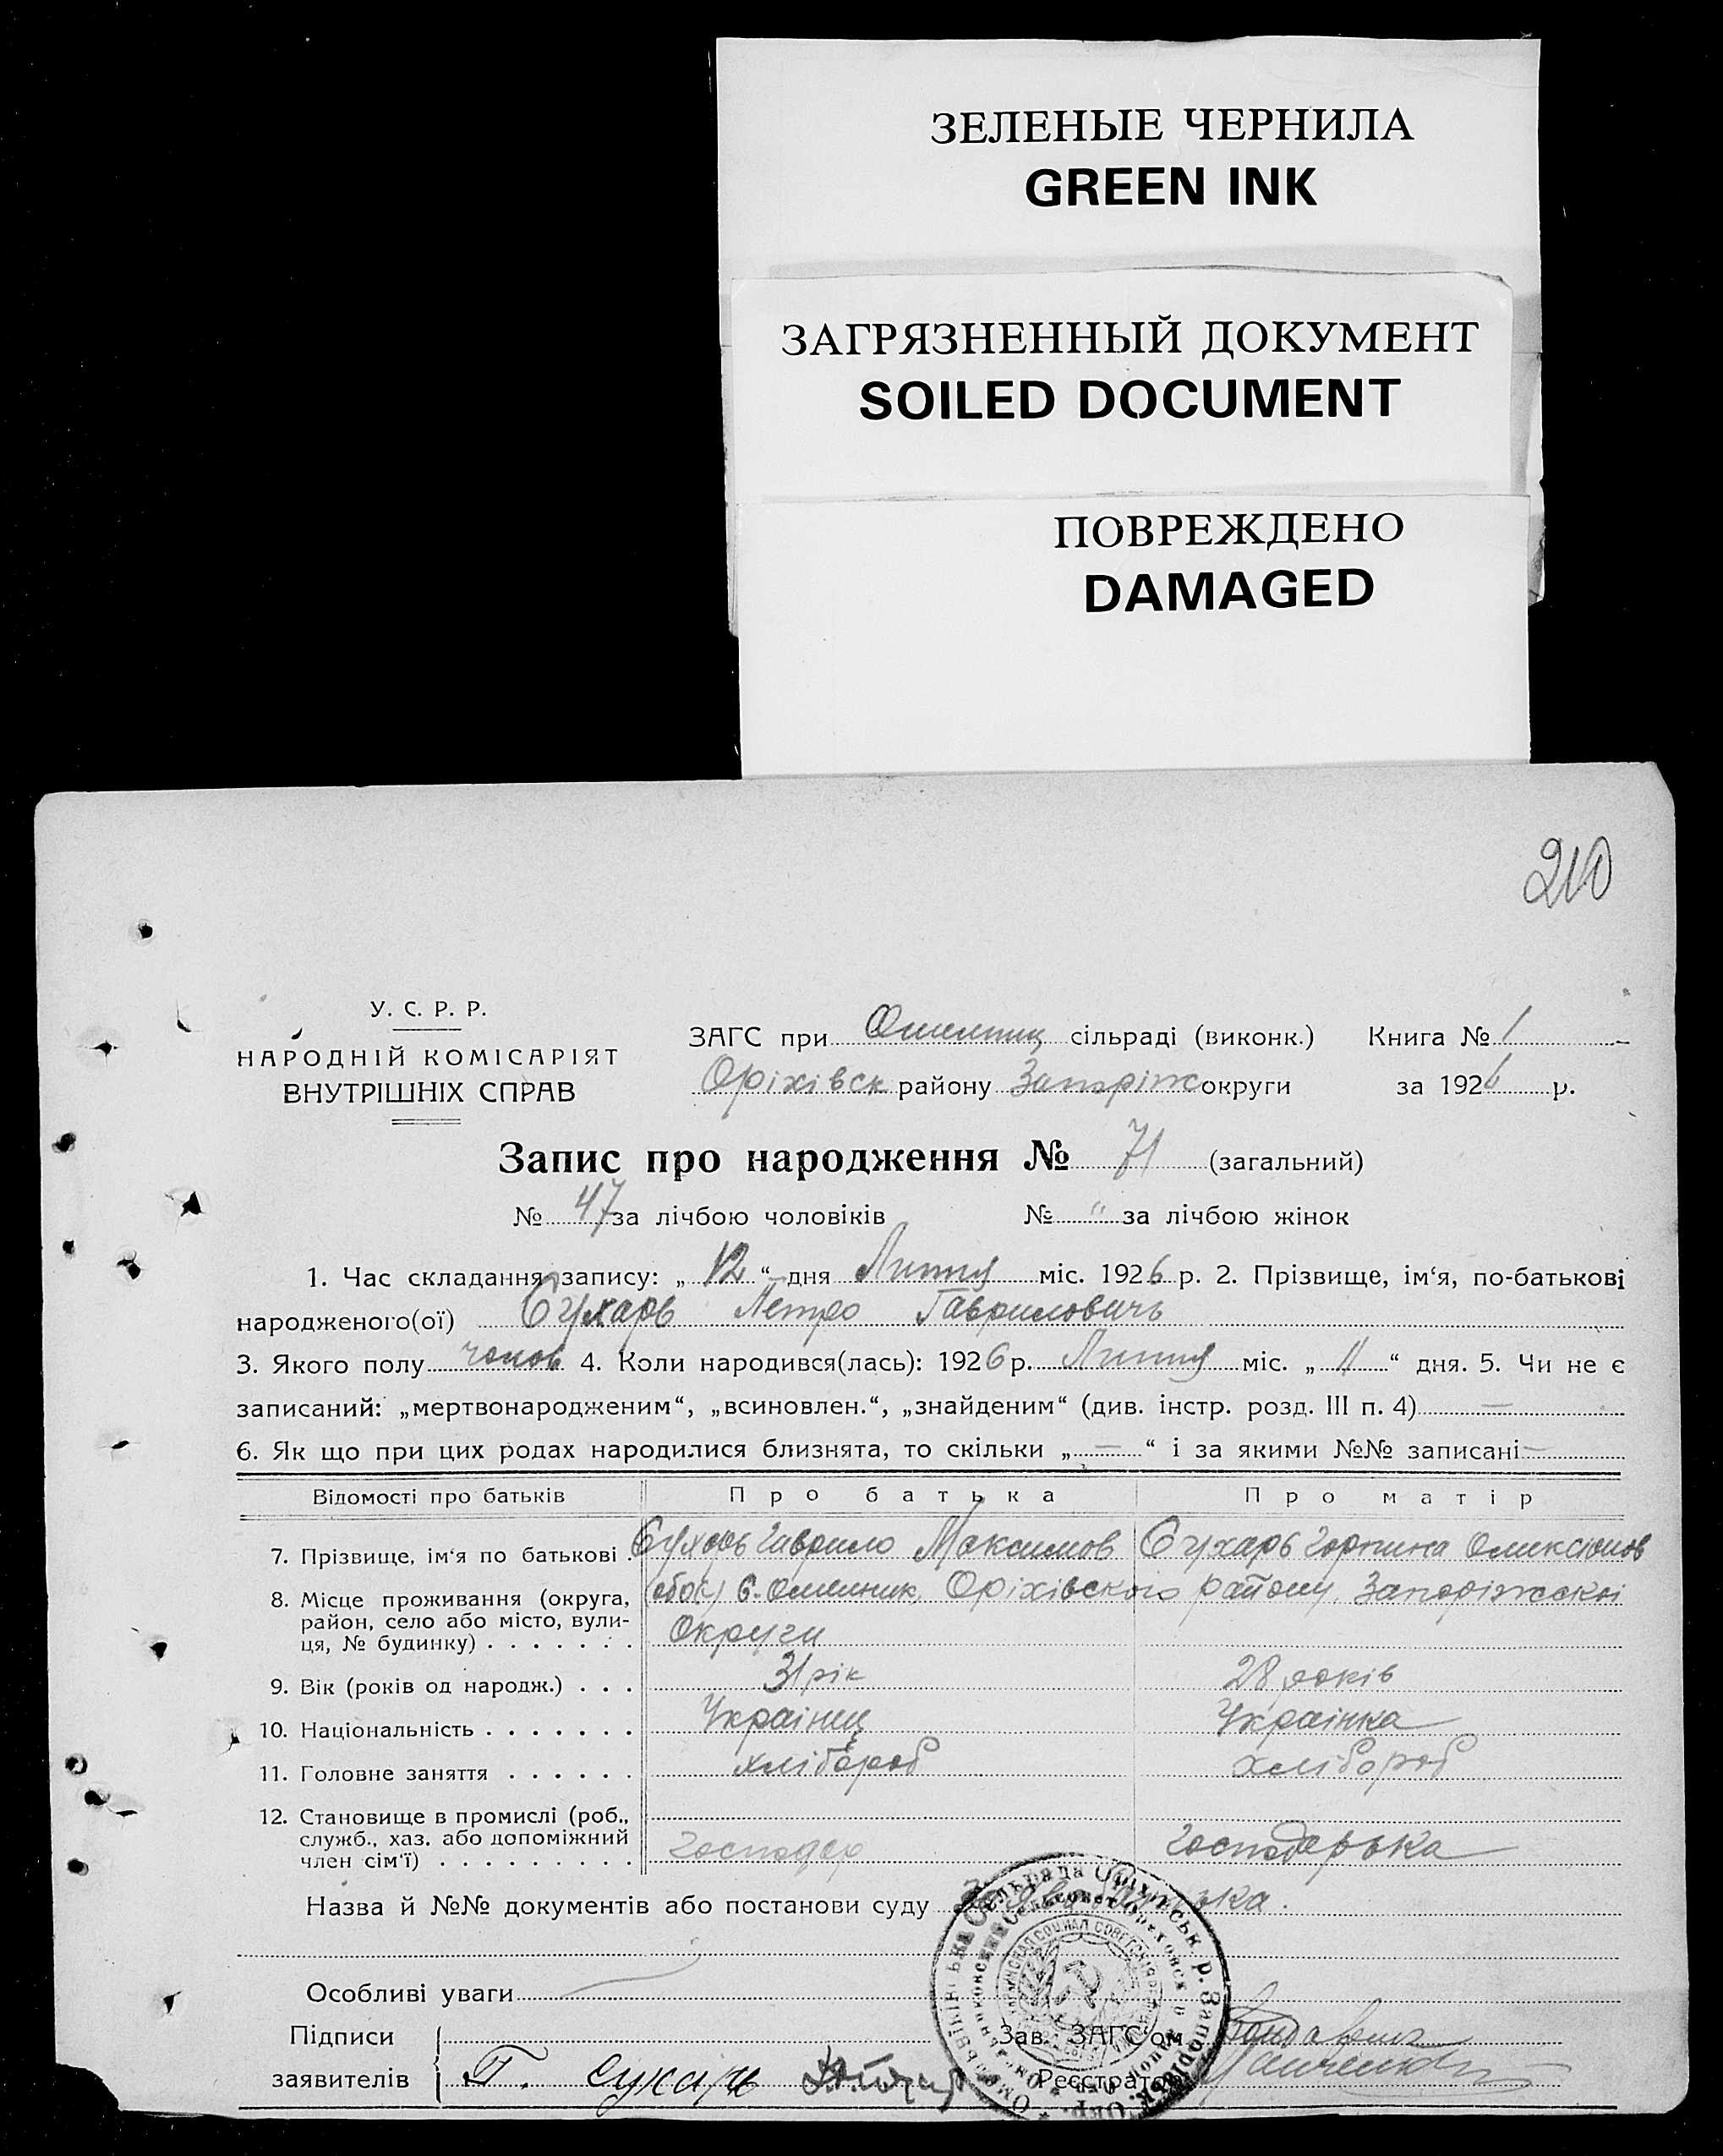 ЗЕЛЕНЫЕ ЧЕРНИЛА
GREEN INK
ЗАГРЯЗНЕННЫЙ ДОКУМЕНТ
SOILED DOCUMENT
ПОВРЕЖДЕНО
DAMAGED
210
У. С. Р. Р.
НАРОДНІЙ КОМІСАРІЯТ
ВНУТРІШНІХ СПРАВ
ЗАГС при сільраді (виконк.) Книга № 1
Оріхівск району Запоріж округи за 1926 р.
Запис про народження № 71 (загальний)
№ 47 за лічбою чоловіків № " за лічбою жінок
1. Час складання запису: „ 12 “ дня Липня міс. 1926 р. 2. Прізвище, ім‘я, по-батькові
народженого(ої) Сухарь Петро Гаврилович
3. Якого полу чолов 4. Коли народився(лась): 1926 р. Липня міс. „ 11 “ дня. 5. Чи не є
записаний: „мертвонародженим“, „всиновлен.“, „знайденим“ (див. інстр. розд. III п. 4) —
6. Як що при цих родах народилися близнята, то скільки „ — “ і за якими №№ записані —
Відомості про батьків Про батька Про матір
7. Прізвище, ім‘я по батькові . Сухарь Гаврило Максимов Сухарь Горпина
8. Місце проживання (округа, район, село або місто, вули-ця, № будинку) . . . . . . . С. Омельник, Оріхівского району, Запоріжскоі
Округи
9. Вік (років од народж.) . . . 31 рік 28 років
10. Національність . . . . . . . Украінец Украінка
11. Головне заняття . . . . . . хлібороб хлібороб
12. Становище в промислі (роб., служб., хаз. або допоміжний член сім‘ї) . . . . . . . . . господар господарька
Назва й №№ документів або постанови суду
Особливі уваги
Підписи Зав. ЗАГС‘ом
заявителів Г. Сухарь Реєстратор